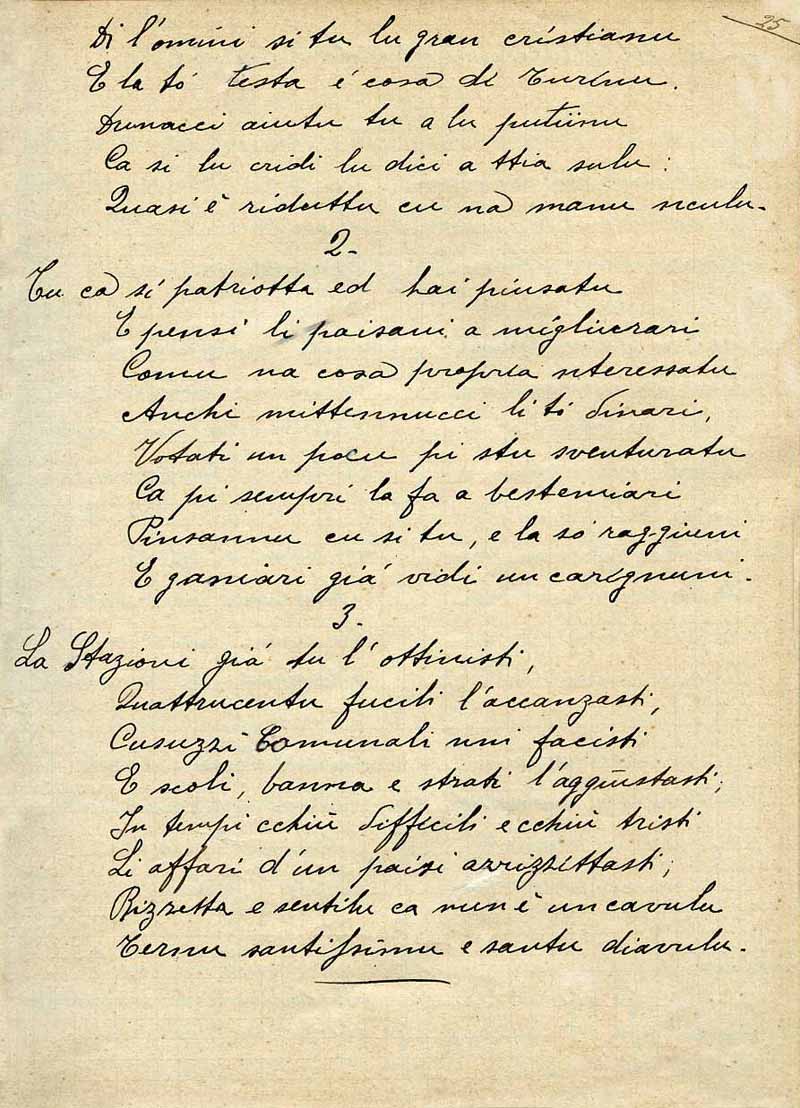 25
Di l'omini si tu lu gran cristianu
E la tó testa é cosa di Turinu.
Dunacci aiutu tu a lu putiinu
Ca si lu cridi lu dici a ttia sulu:
Quasi è riduttu cu na manu nculu.
2.
Tu ca si patriotta ed hai pinsatu
E pensi li paisani a migliurari
Comu na cosa propria nteressatu
Anchi mittennucci li tó dinari,
Votati un pocu pi stu sventuratu
Ca pi sempri la fa a bestemiari
Pinsannu cu si tu, e la só raggiuni
E ganiari giá vidi un carignuni.
3.
La Stazioni giá tu l'ottinisti,
Quattrucentu fucili l'accanzasti,
Cusuzzi Comunali nni facisti
E scoli, banna e strati l'aggiustasti;
In tempi cchiù difficili e cchiù tristi
Li affari d'un paisi arrizzittasti;
Rizzetta e sentilu ca nun è un cavulu
Ternu santissimu e santu diavulu.